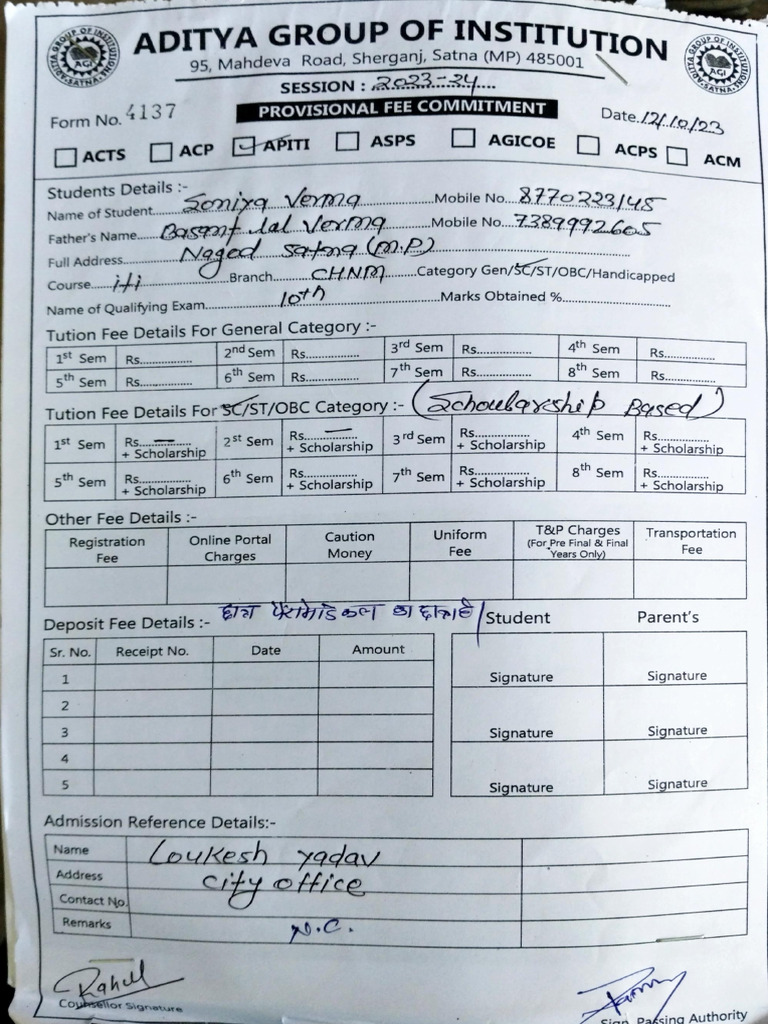 ADITYA GROUP OF INSTITUTION
95, Mahdeva Road, Sherganj, Satna (MP) 485001
SESSION : 2023-24
PROVISIONAL FEE COMMITMENT
Form No. 4137 Date. 12/10/23
ACTS ACP APITI ASPS AGICOE ACPS ACM
Students Details :-
Name of Student Soniya Verma Mobile No. 8770223145
Father's Name Basant lal Verma Mobile No. 7389992605
Full Address Naged Satna (M.P)
Course iti Branch CHNM Category Gen/SC/ST/OBC/Handicapped
Name of Qualifying Exam 10th Marks Obtained %
Tution Fee Details For General Category :-
1st Sem Rs. 2nd Sem Rs. 3rd Sem Rs. 4th Sem Rs.
5th Sem Rs. 6th Sem Rs. 7th Sem Rs. 8th Sem Rs.
Tution Fee Details For SC/ST/OBC Category :- (Schoularship Based)
1st Sem Rs. — + Scholarship 2st Sem Rs. — + Scholarship 3rd Sem Rs. + Scholarship 4th Sem Rs. + Scholarship
5th Sem Rs. + Scholarship 6th Sem Rs. + Scholarship 7th Sem Rs. + Scholarship 8th Sem Rs. + Scholarship
Other Fee Details :-
Registration Fee Online Portal Charges Caution Money Uniform Fee T&P Charges (For Pre Final & Final Years Only) Transportation Fee
छात्र पैरामेडिकल का छात्र है
Deposit Fee Details :- Student Parent's
Sr. No. Receipt No. Date Amount
1 Signature Signature
2
3 Signature Signature
4
5 Signature Signature
Admission Reference Details:-
Name Loukesh yadav
Address City office
Contact No.
Remarks N.C.
Rahul
Counsellor Signature Sign. Passing Authority